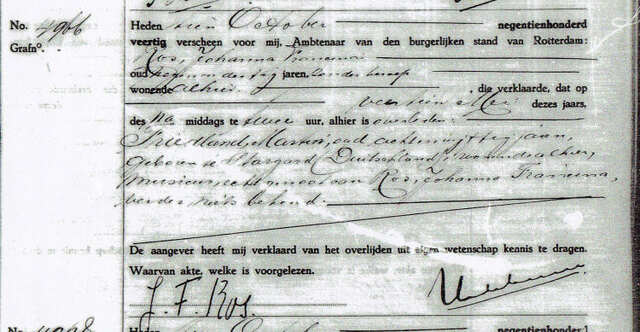 No. 4966 Heden tien October negentienhonderd
Grafno. veertig verscheen voor mij, Ambtenaar van den burgerlijken stand van Rotterdam:
Ros, Johanna Francina
oud jaren, zonder beroep
wonende alhier, die verklaarde, dat op
veertien Mei dezes jaars,
des na middags te twee uur, alhier is overleden:
Friedland, Martin, oud achtenvijftig jaar,
geboren te Stargard Duitschland, wonende alhier,
musicus, echtgenoot van Ros, Johanna Francina,
verder niets bekend.
De aangever heeft mij verklaard van het overlijden uit eigen wetenschap kennis te dragen.
Waarvan akte, welke is voorgelezen.
J. F. Ros.
Heden October negentienhonderd